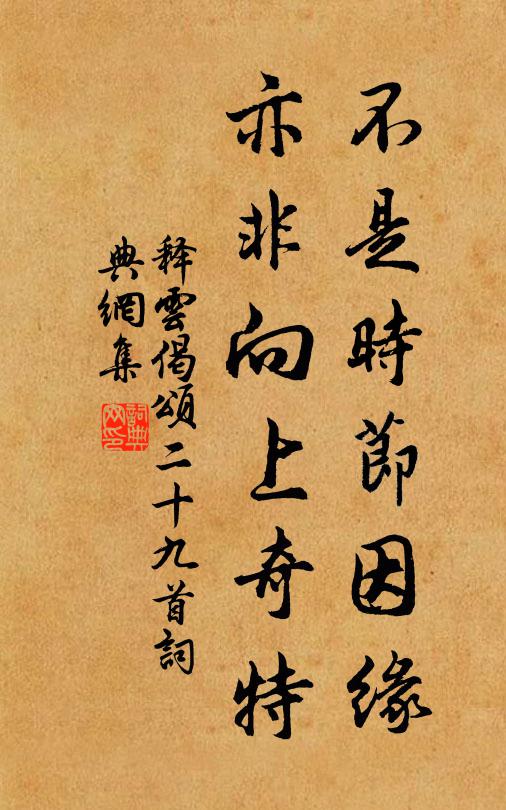 不是時節因緣
亦非向上奇特
释雲偈頌二十九首詞
典網集
詞典
网印